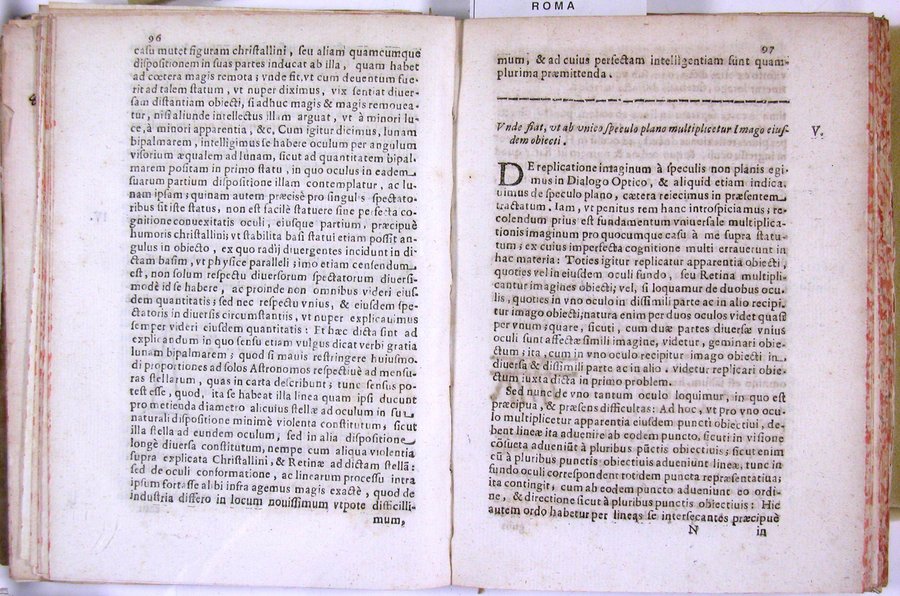 ROMA
96
casu mutet figuram christallini, seu aliam quamcumque
dispositionem in suas partes inducat ab illa, quam habet
ad cœtera magis remota; vnde fit, vt cum deuentum fue-
rit ad talem statum, vt nuper diximus, vix sentiat diuer-
sam distantiam obiecti, si adhuc magis & magis remouea-
tur, nisi aliunde intellectus illam arguat, vt à minori lu-
ce, à minori apparentia, &c, Cum igitur dicimus, lunam
bipalmarem, intelligimus se habere oculum per angulum
visorium æqualem ad lunam, sicut ad quantitatem bipal-
marem positam in primo statu, in quo oculus in eadem
suarum partium dispositione illam contemplatur, ac lu-
nam ipsam; quinam autem præcisè pro singulis spectato-
ribus sit iste status, non est facilè statuere sine perfecta co-
gnitione conuexitatis oculi, eiusque partium, præcipuè
humoris christallini; vt stabilita basi statui etiam possit an-
gulus in obiecto, ex quo radij diuergentes incidunt in di-
ctam basim, vt physice paralleli; imo etiam censendum
est, non solum respectu diuersorum spectatorum diuersi-
modè id se habere, ac proinde non omnibus videri eius-
dem quantitatis; sed nec respectu vnius, & eiusdem spe-
ctatoris in diuersis circumstantiis, vt nuper explicauimus
semper videri eiusdem quantitatis: Et hæc dicta sint ad
explicandum in quo sensu etiam vulgus dicat verbi gratia
lunam bipalmarem; quod si mauis restringere huiusmo.
di proportiones ad solos Astronomos respectiuè ad mensu-
ras stellarum, quas in carta describunt; tunc sensus po-
test esse, quod, ita se habeat illa linea quam ipsi ducunt
pro metienda diametro alicuius stellæ ad oculum in su
naturali dispositione minimè violenta constitutum, sicut
illa stella ad eundem oculum, sed in alia dispositione
longè diuersa constitutum, nempe cum aliqua violentia
supra explicata Christallini, & Retinæ ad dictam stellã:
sed de oculi conformatione, ac linearum processu intra
ipsum fortasse alibi infra agemus magis exactè, quod de
industria differo in locum nouissimum vtpote difficilli-
mum,
97
mum, & ad cuius perfectam intelligentiam sunt quam-
plurima præmittenda.
Vnde fiat, vt ab vnico speculo plano multiplicetur Imago eius-
dem obiecti.
V.
DE replicatione imaginum à speculis non planis egi-
mus in Dialogo Optico, & aliquid etiam indica.
uimus de speculo plano, cætera reiecimus in præsentem
tractatum, Iam, vt penitus rem hanc introspiciamus; re-
colendum prius est fundamentum vniuersale multiplica-
tionis imaginum pro quocumque casu à mè supra statu-
tum; ex cuius imperfecta cognitione multi errauerunt in
hac materia: Toties igitur replicatur apparentia obiecti,
quoties vel in eiusdem oculi fundo, seu Retina multipli-
cantur imagines obiecti; vel, si loquamur de duobus ocu-
lis, quoties in vno oculo in dissimili parte ac in alio recipi.
tur imago obiecti; natura enim per duos oculos videt quasi
per vnum; quare, sicuti, cum duæ partes diuersæ vnius
oculi sunt affectæ simili imagine, videtur, geminari obie-
ctum; ita, cum in vno oculo recipitur imago obiecti in
diuersa & dissimili parte ac in alio. videtur replicari obie-
ctum iuxta dicta in primo problem.
Sed nunc de vno tantum oculo loquimur, in quo est
præcipua, & præsens difficultas: Ad hoc, vt pro vno ocu-
lo multiplicetur apparentia eiusdem puncti obiectiui, de-
bent lineæ ita aduenire ab eodem puncto, sicuti in visione
cõsueta adueniũt à pluribus pũctis obiectiuis; sicut enim
cũ à pluribus punctis obiectiuis adueniunt lineæ, tunc in
fundo oculi correspondent totidem puncta repræsentatiua;
ita contingit, cum ab eodem puncto adueniunt eo ordi-
ne, & directione sicut à pluribus punctis obiectiuis: Hic
autem ordo habetur per lineas se intersecantes præcipuè
N
in